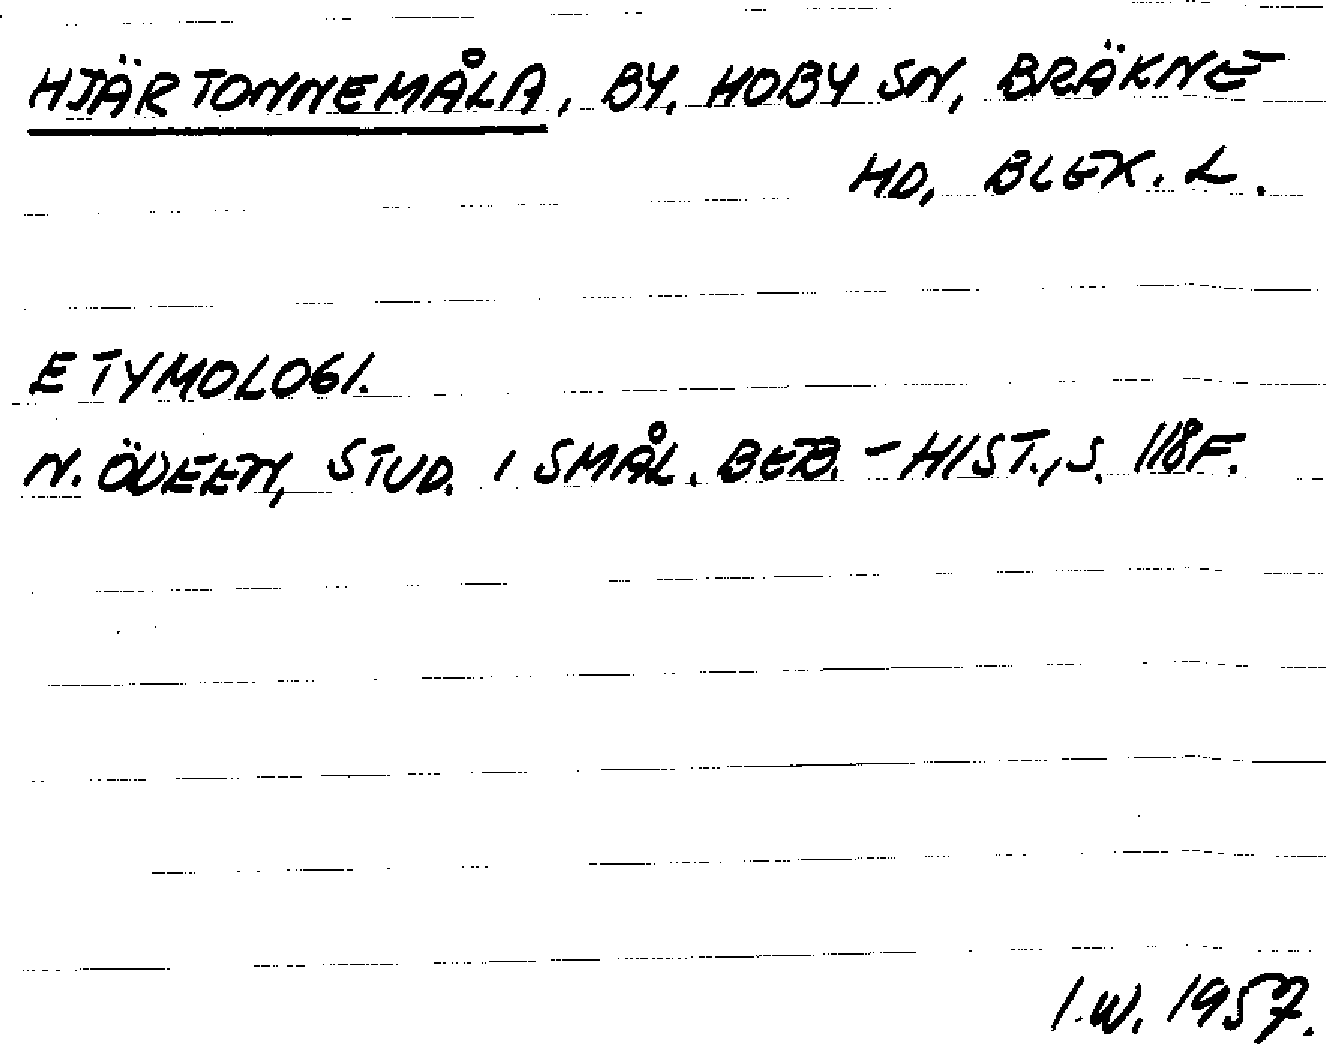 HJÄRTONNEMÅLA, BY, HOBY SN, BRÄKNE
HD, BLEK. L.
ETYMOLOGI.
N. ÖDEEN, STUD. I SMÅL. BEB.-HIST., S. 118F.
I.W. 1957.